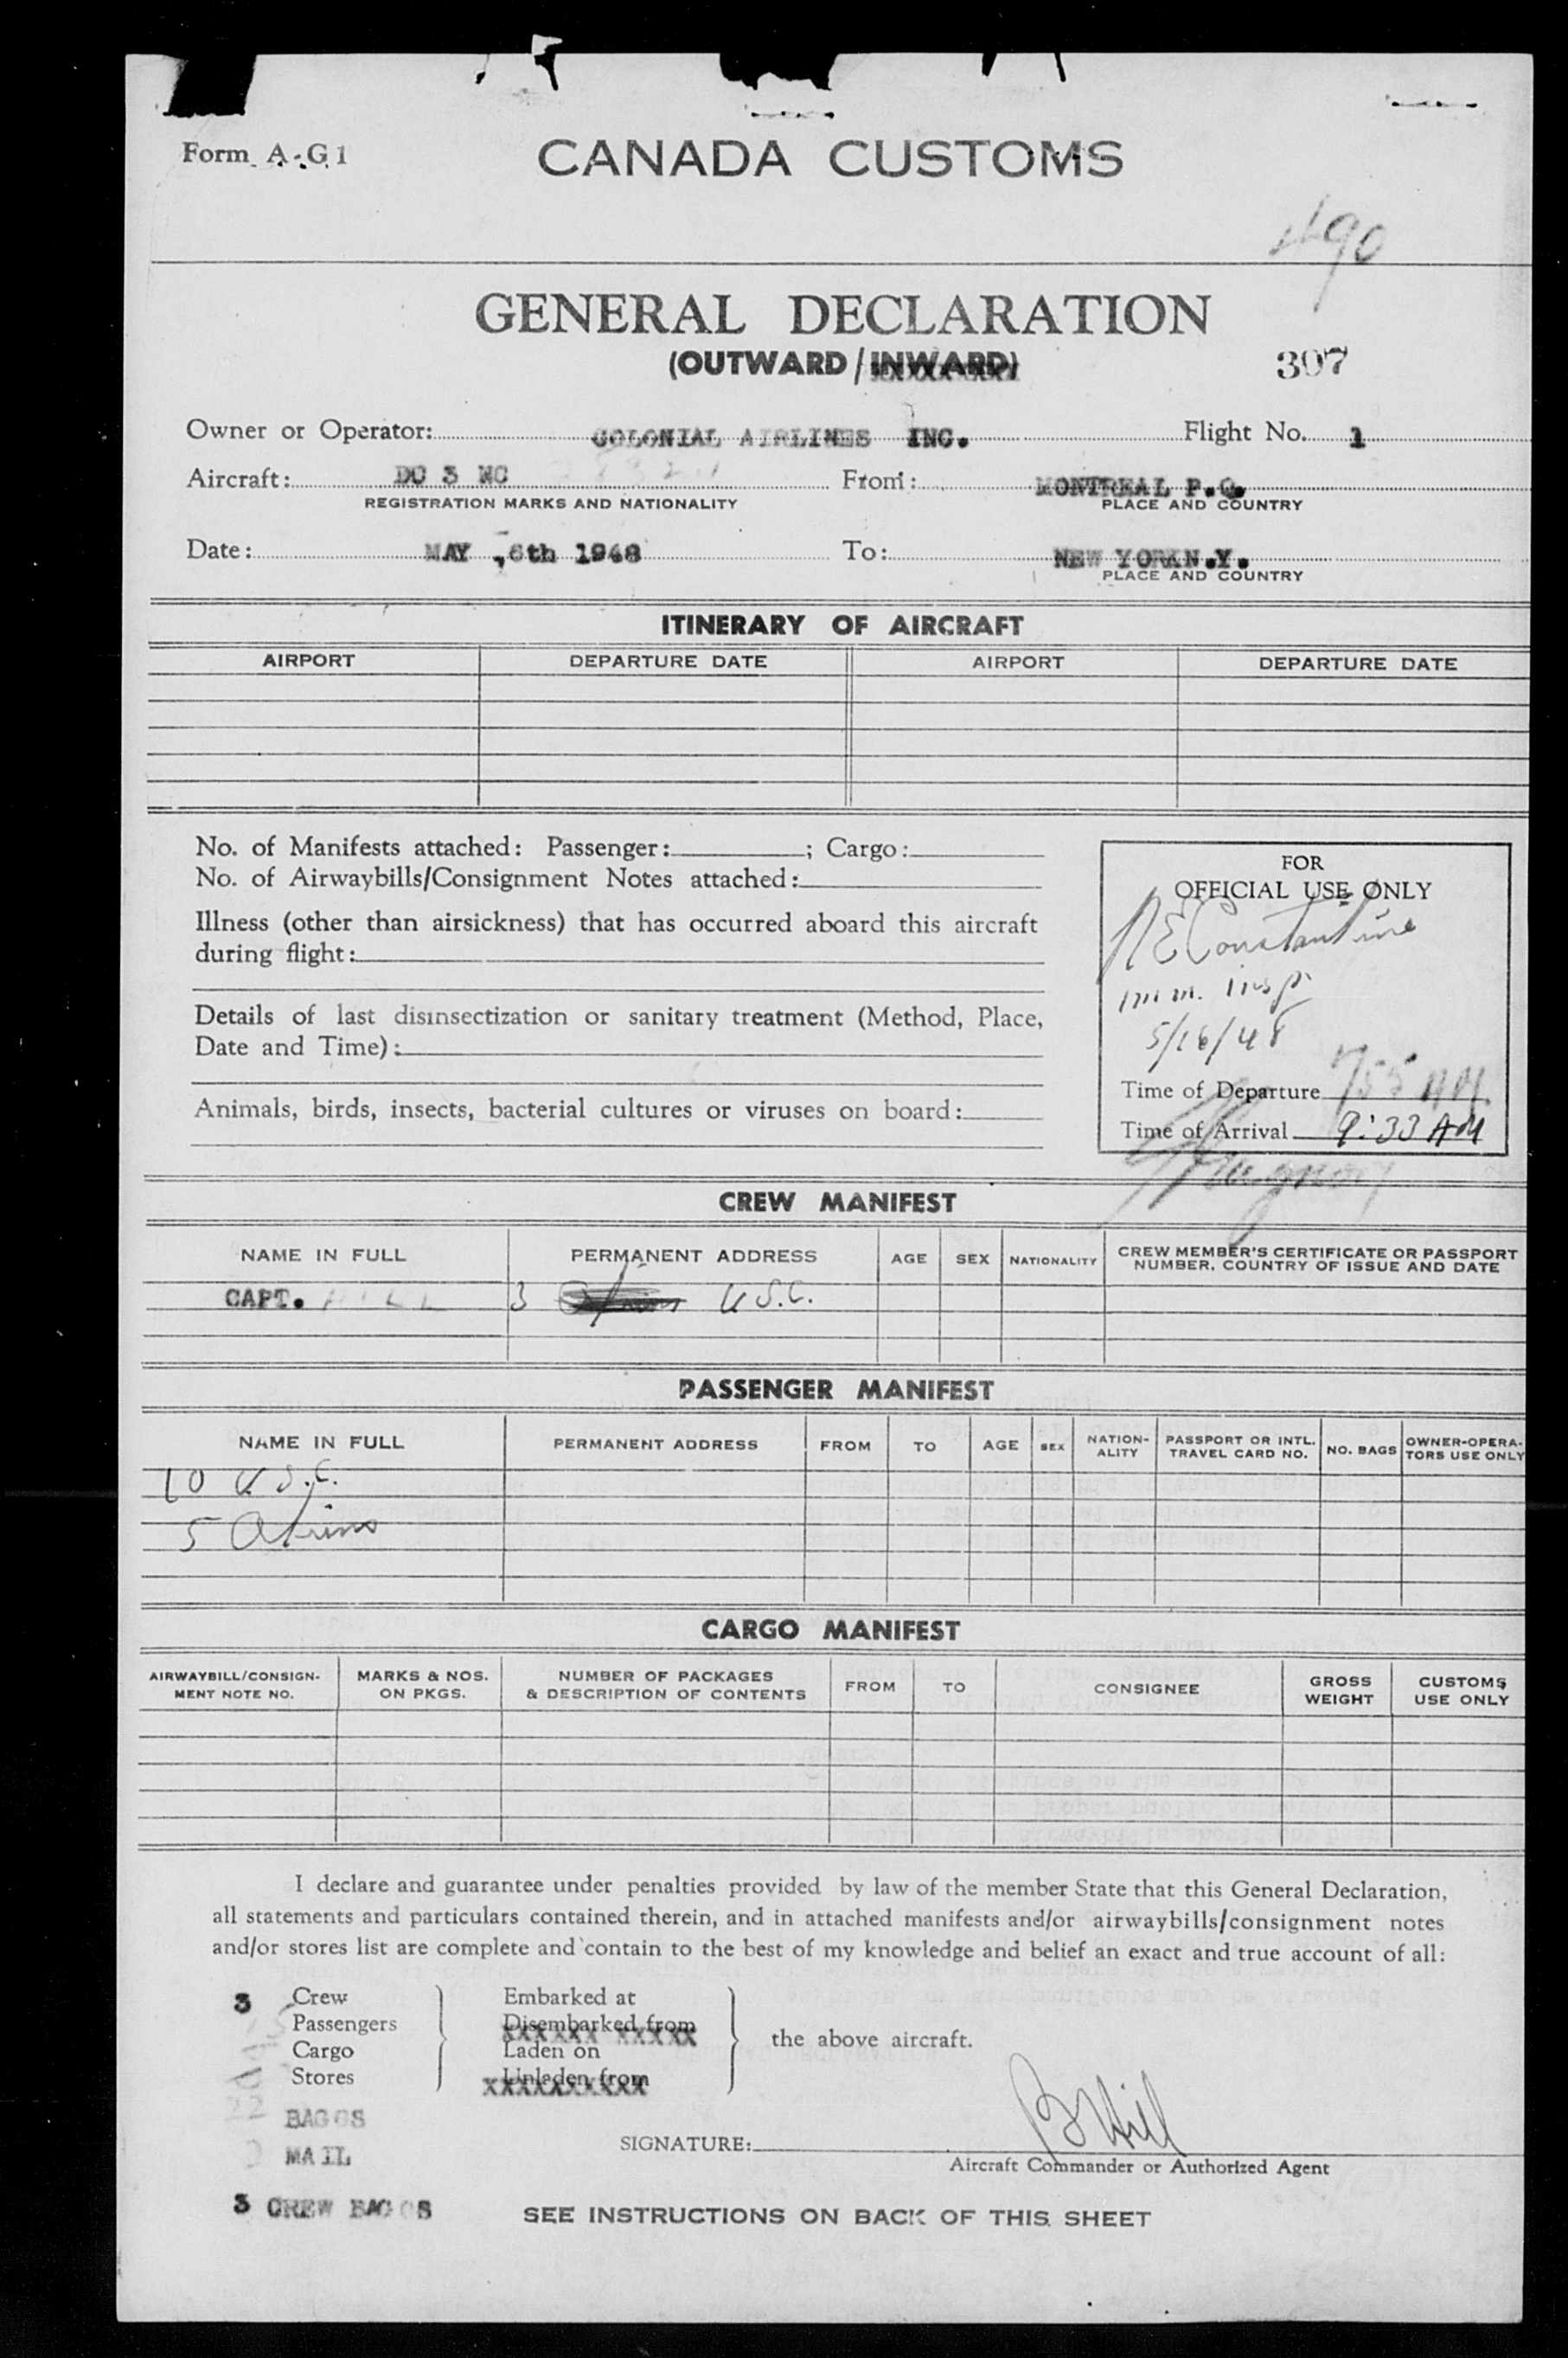 Form A-G1
CANADA CUSTOMS
490
GENERAL DECLARATION
(OUTWARD / INWARD)
307
Owner or Operator: COLONIAL AIRLINES INC. Flight No. 1
Aircraft: DC 3 NC From: MONTREAL P.Q.
REGISTRATION MARKS AND NATIONALITY PLACE AND COUNTRY
Date: MAY ,6th 1948 To: NEW YORKN.Y.
PLACE AND COUNTRY
ITINERARY OF AIRCRAFT
AIRPORT DEPARTURE DATE AIRPORT DEPARTURE DATE
No. of Manifests attached: Passenger: ; Cargo:
No. of Airwaybills/Consignment Notes attached:
Illness (other than airsickness) that has occurred aboard this aircraft
during flight:
Details of last disinsectization or sanitary treatment (Method, Place,
Date and Time):
Animals, birds, insects, bacterial cultures or viruses on board:
FOR
OFFICIAL USE ONLY
Constantine
imm. insp
5/16/48
Time of Departure 755 AM
Time of Arrival 9:33 AM
CREW MANIFEST
NAME IN FULL PERMANENT ADDRESS AGE SEX NATIONALITY CREW MEMBER'S CERTIFICATE OR PASSPORT
NUMBER, COUNTRY OF ISSUE AND DATE
CAPT. HILL 3 U.S.C.
PASSENGER MANIFEST
NAME IN FULL PERMANENT ADDRESS FROM TO AGE SEX NATION-
ALITY PASSPORT OR INTL.
TRAVEL CARD NO. NO. BAGS OWNER-OPERA-
TORS USE ONLY
10 U.S.C.
5 Aliens
CARGO MANIFEST
AIRWAYBILL/CONSIGN-
MENT NOTE NO. MARKS & NOS.
ON PKGS. NUMBER OF PACKAGES
& DESCRIPTION OF CONTENTS FROM TO CONSIGNEE GROSS
WEIGHT CUSTOMS
USE ONLY
I declare and guarantee under penalties provided by law of the member State that this General Declaration,
all statements and particulars contained therein, and in attached manifests and/or airwaybills/consignment notes
and/or stores list are complete and contain to the best of my knowledge and belief an exact and true account of all:
3 Crew Embarked at
15 Passengers Disembarked from
the above aircraft.
Cargo Laden on
Stores Unladen from
22 BAGGS
MAIL
SIGNATURE: B Hill
Aircraft Commander or Authorized Agent
3 CREW BAGGS
SEE INSTRUCTIONS ON BACK OF THIS SHEET